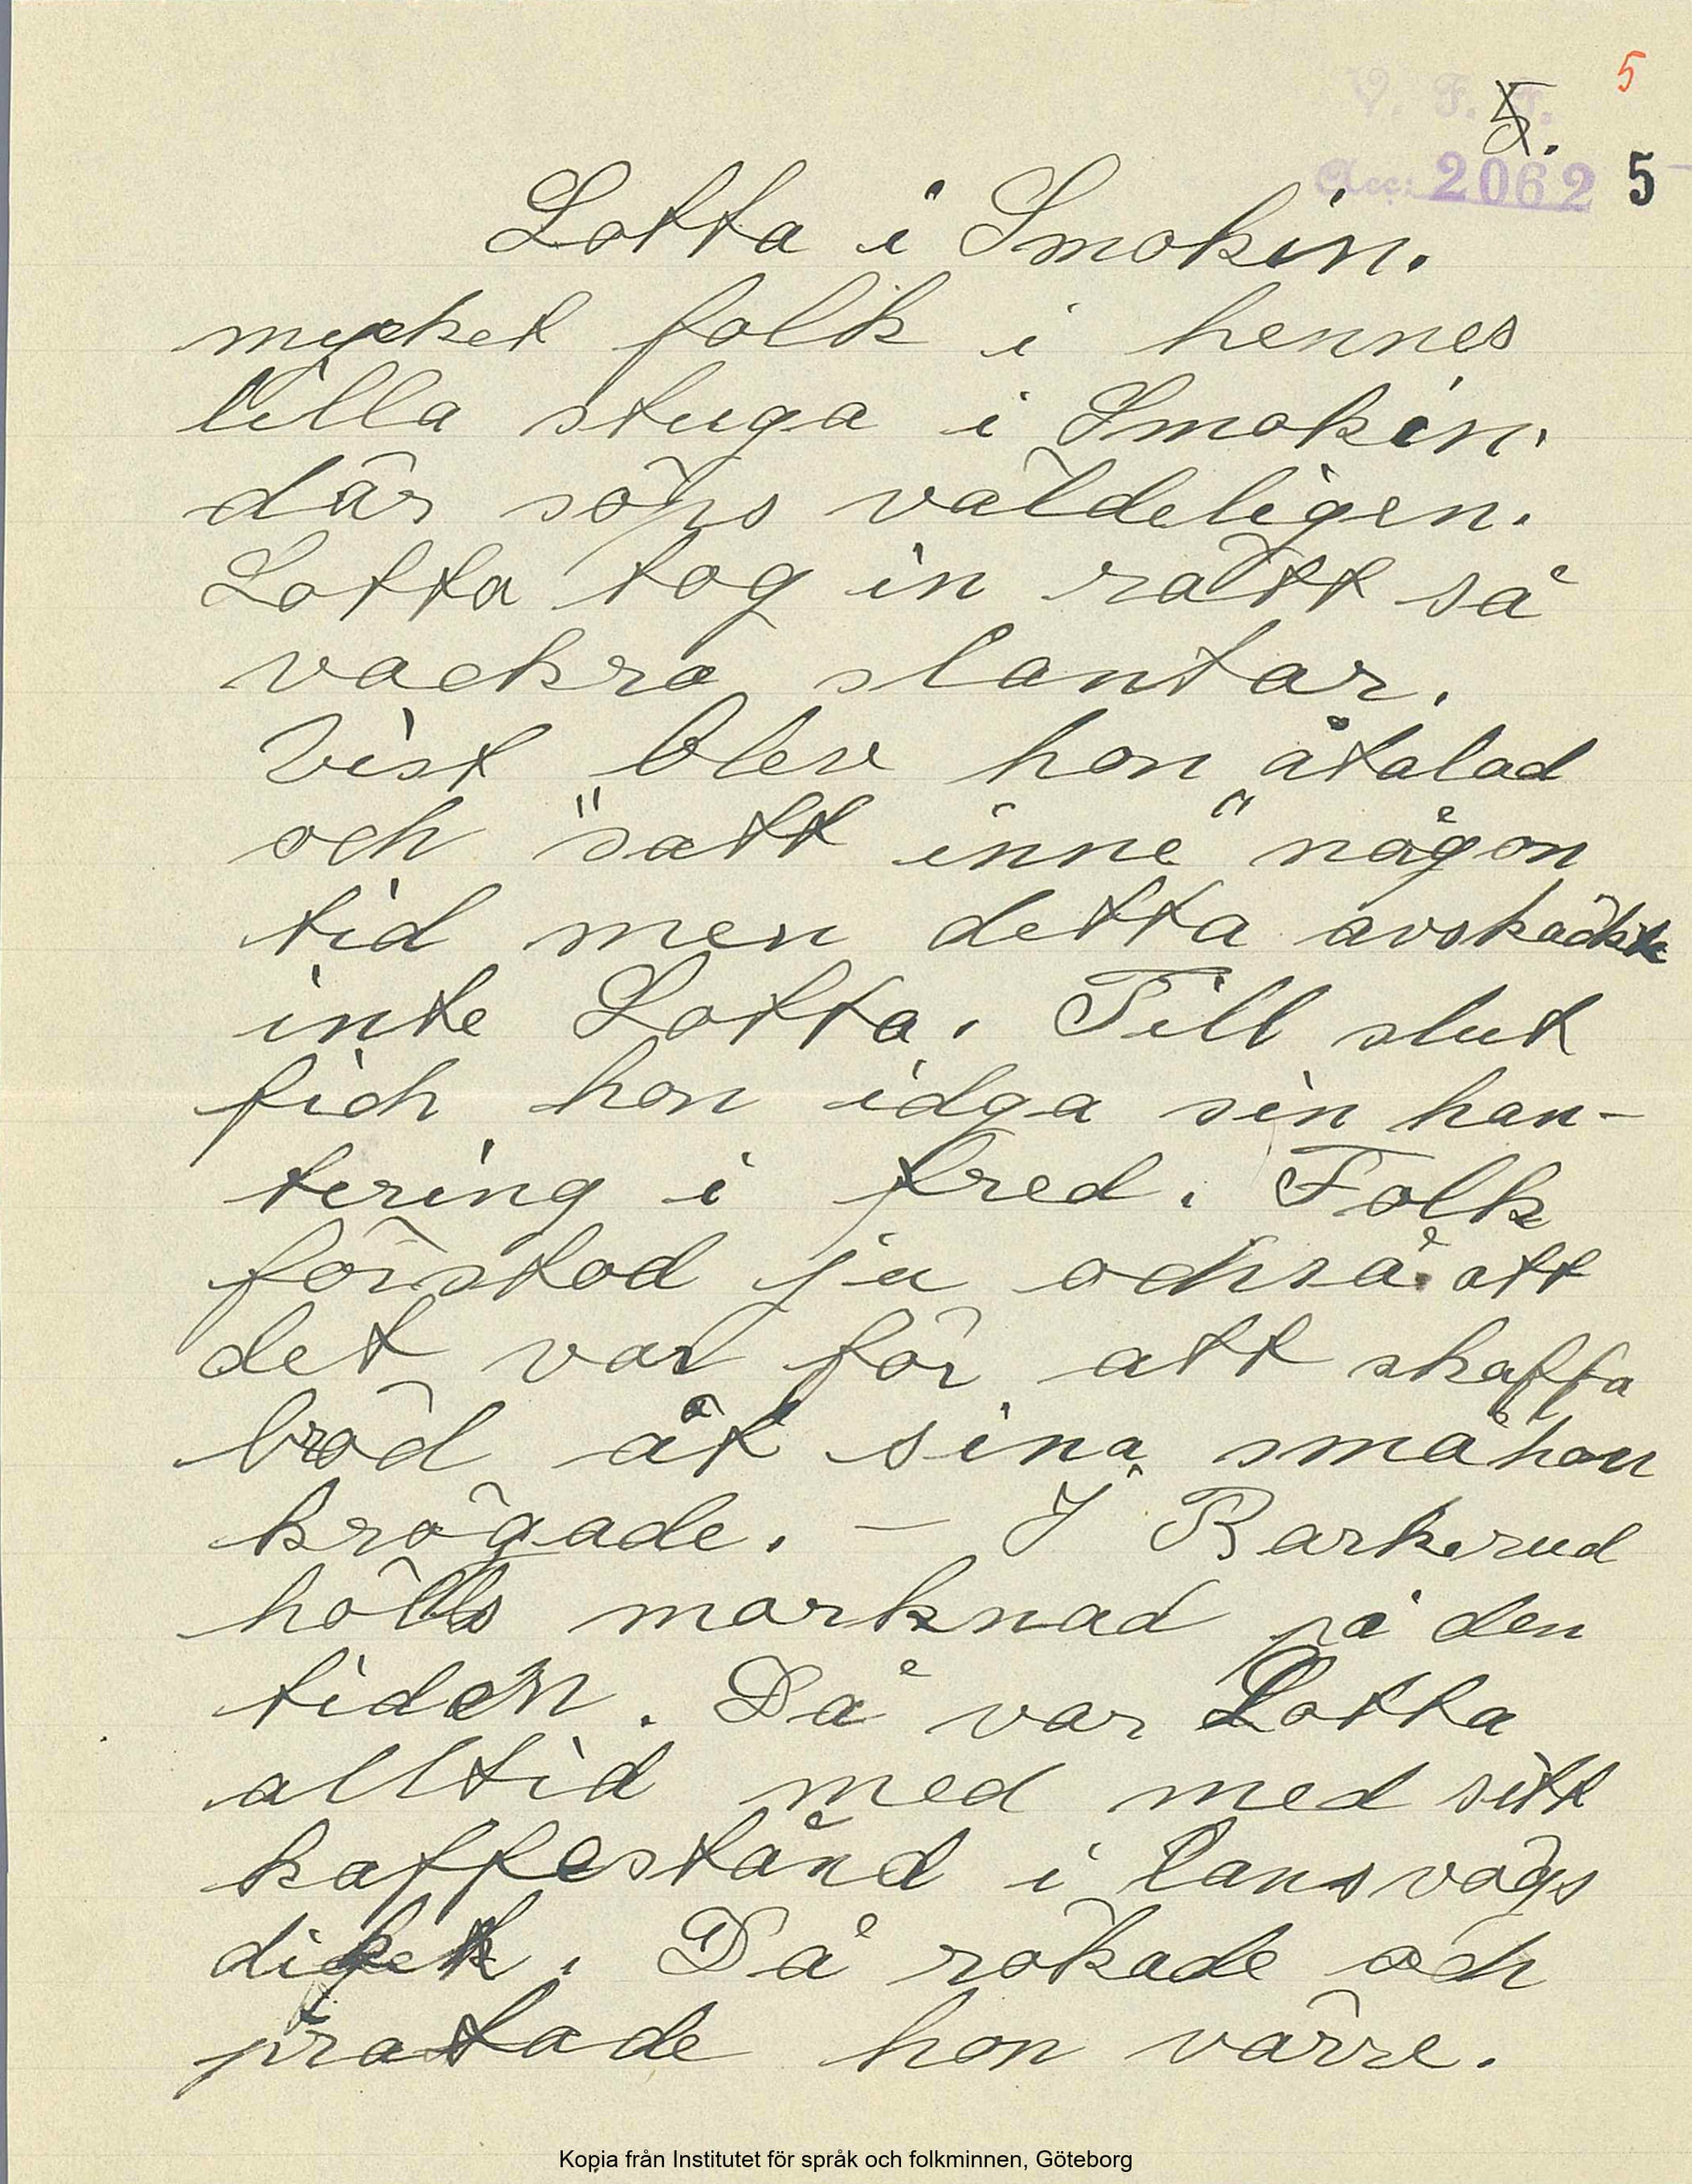 5
V. F. F.
5.
Acc: 2062 5
Lotta i Smokin.
mycket folk i hennes
lilla stuga i Smokin.
där söps väldeligen.
Lotta tog in rätt så
vackra slantar.
Vist blev hon åtalad
och "satt inne" någon
tid men detta avskäckte
inte Lotta. Till slut
fich hon idga sin han-
tering i fred. Folk
förstod ju ochså att
det var för att skaffa
bröd åt sina små hon
krögade. – I Barkerud
hölls marknad på den
tiden. Då var Lotta
alltid med med sitt
kaffestånd i lansvägs
diket. Då rökade och
pratade hon värre.
Kopia från Institutet för språk och folkminnen, Göteborg